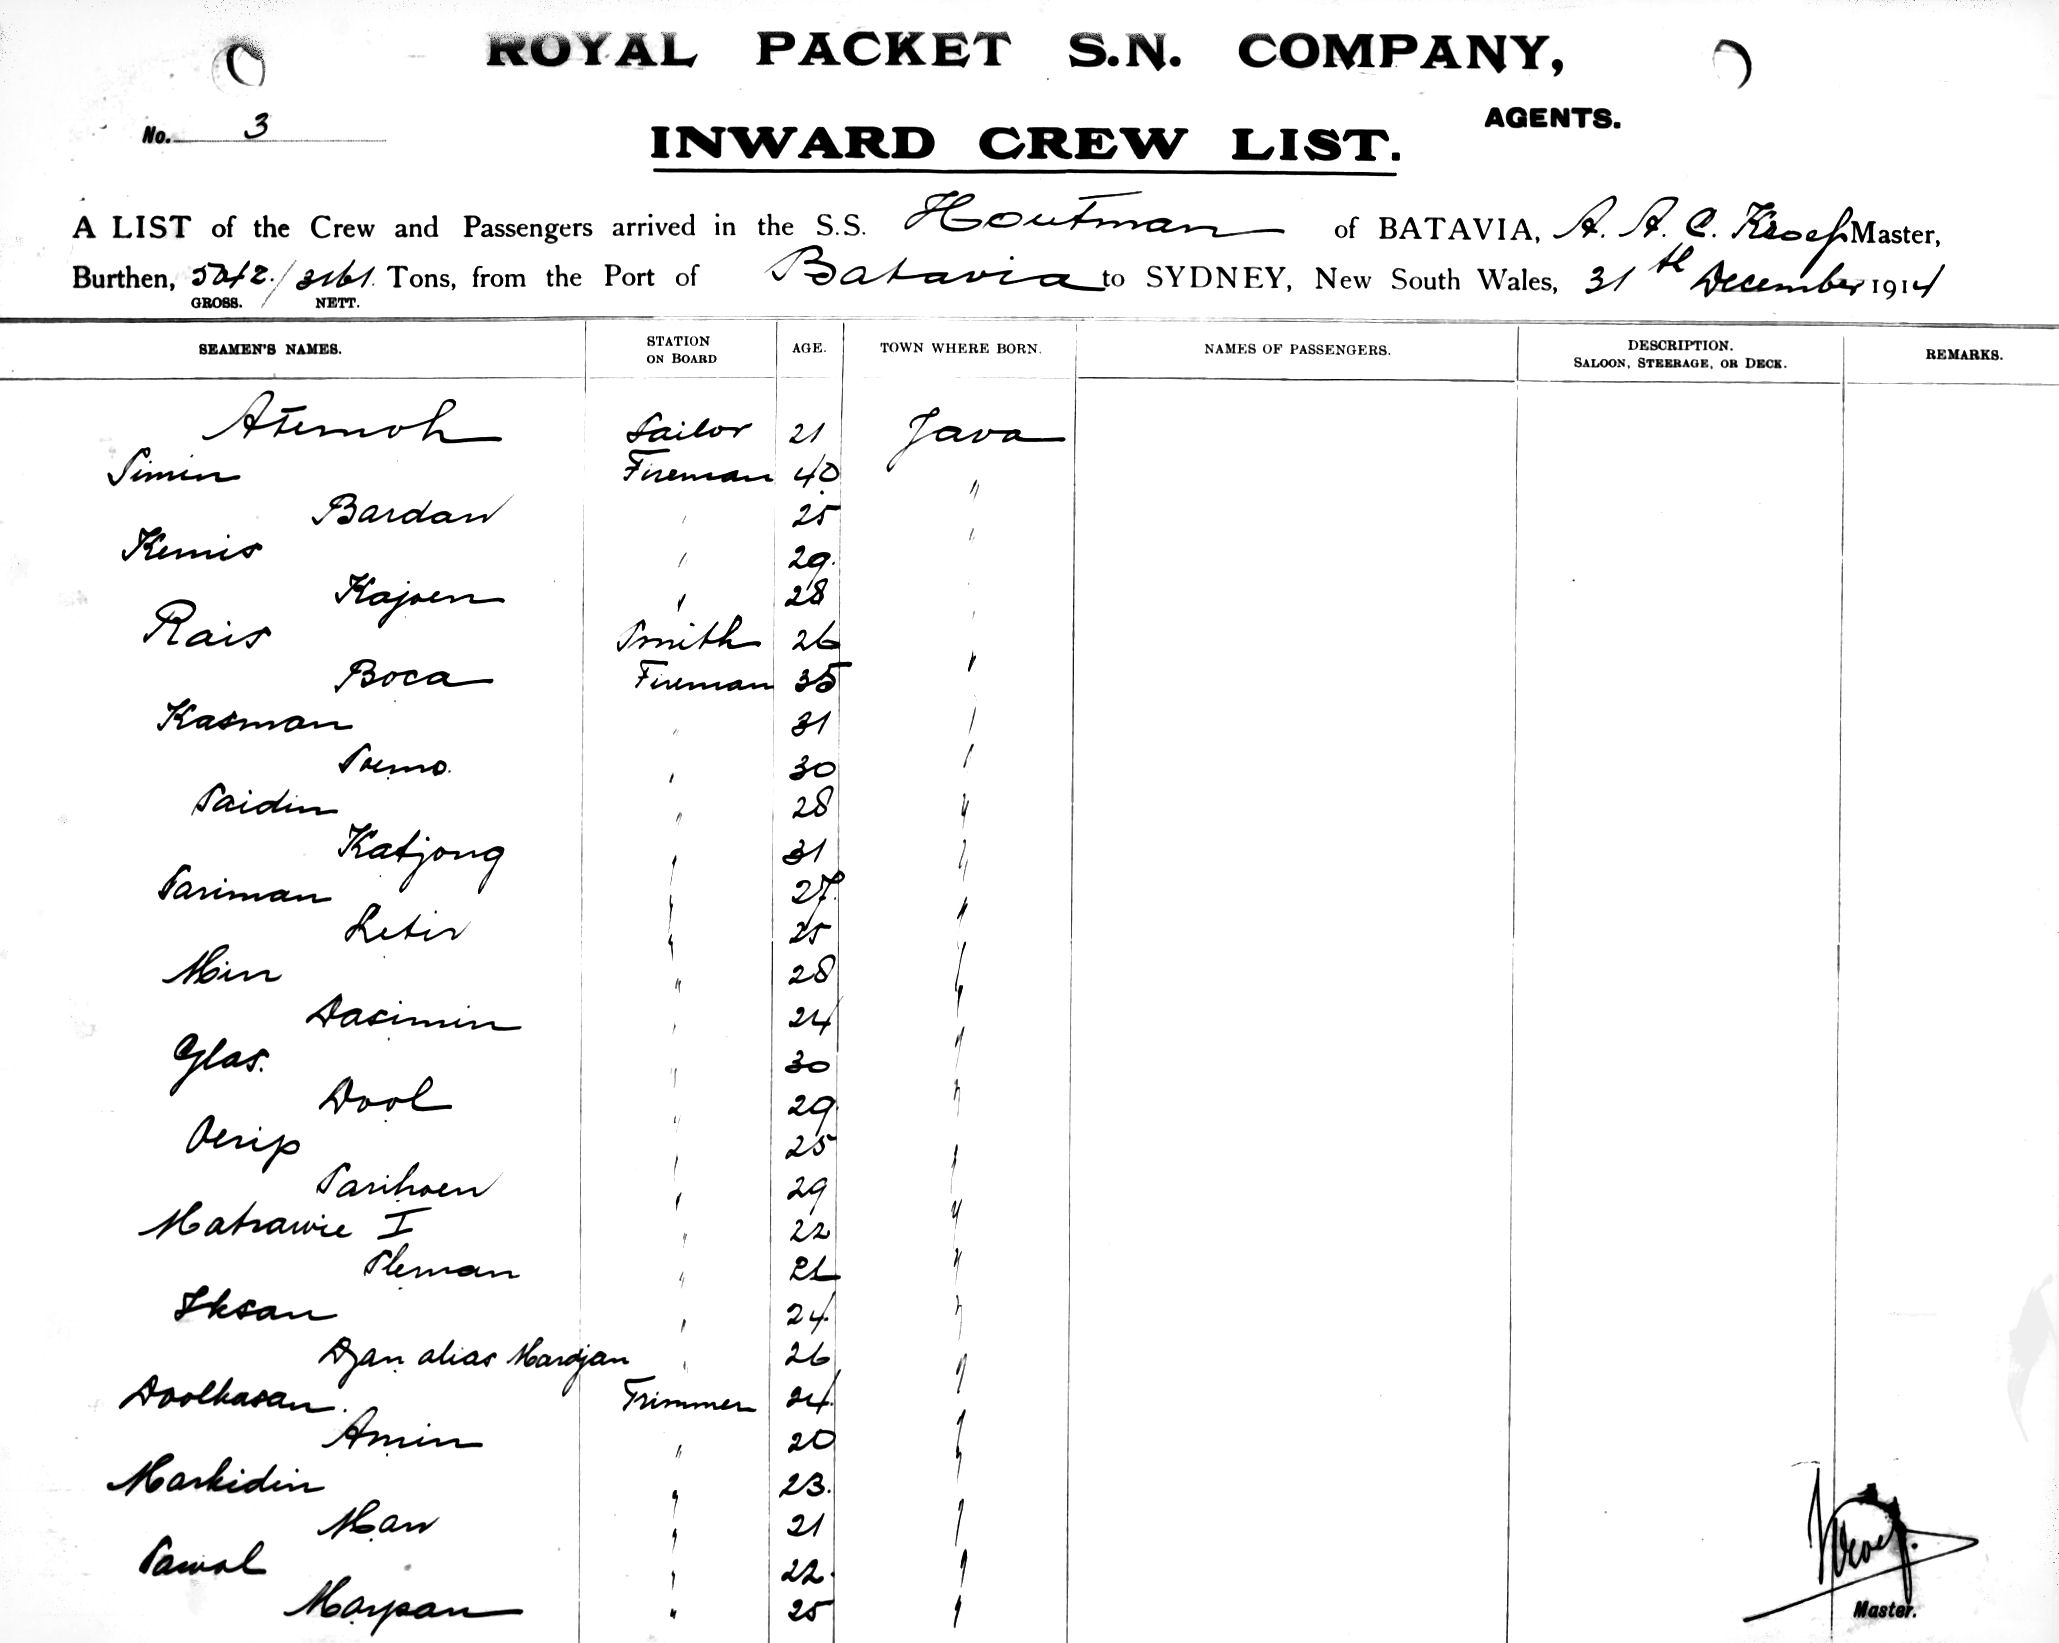 ROYAL PACKET S.N. COMPANY,
AGENTS.
No. 3
INWARD CREW LIST.
A LIST of the Crew and Passengers arrived in the S.S. Houtman of BATAVIA, A. A. C. Kroef Master,
Burthen, 5042 / 3161 Tons, from the Port of Batavia to SYDNEY, New South Wales, 31th December 1914
GROSS. NETT.
SEAMEN'S NAMES. STATION ON BOARD AGE. TOWN WHERE BORN. NAMES OF PASSENGERS. DESCRIPTION. SALOON, STEERAGE, OR DECK. REMARKS.
Atemoh Sailor 21 Java
Simin Fireman 40 "
Bardan " 25 "
Kemis " 29
Kajoen " 28 "
Rais Smith 26 "
Boca Fireman 35 "
Kasman " 31 "
Soemo " 30 "
Saidin " 28 "
Katjong " 31 "
Sariman " 27 "
Letir " 25 "
Min " 28 "
Dasimin " 24 "
Glas. " 30 "
Dool " 29 "
Oerip " 25 "
Sarihoen " 29 "
Matrawie I " 22 "
Sleman " 21 "
Iksan " 24 "
Djan alias Mardjan " 26 "
Doolhasan. Trimmer 24 "
Amin " 20 "
Markidin " 23. "
Man " 21 "
Sawal " 22. "
Marpan " 25 "
Kroef.
Master.